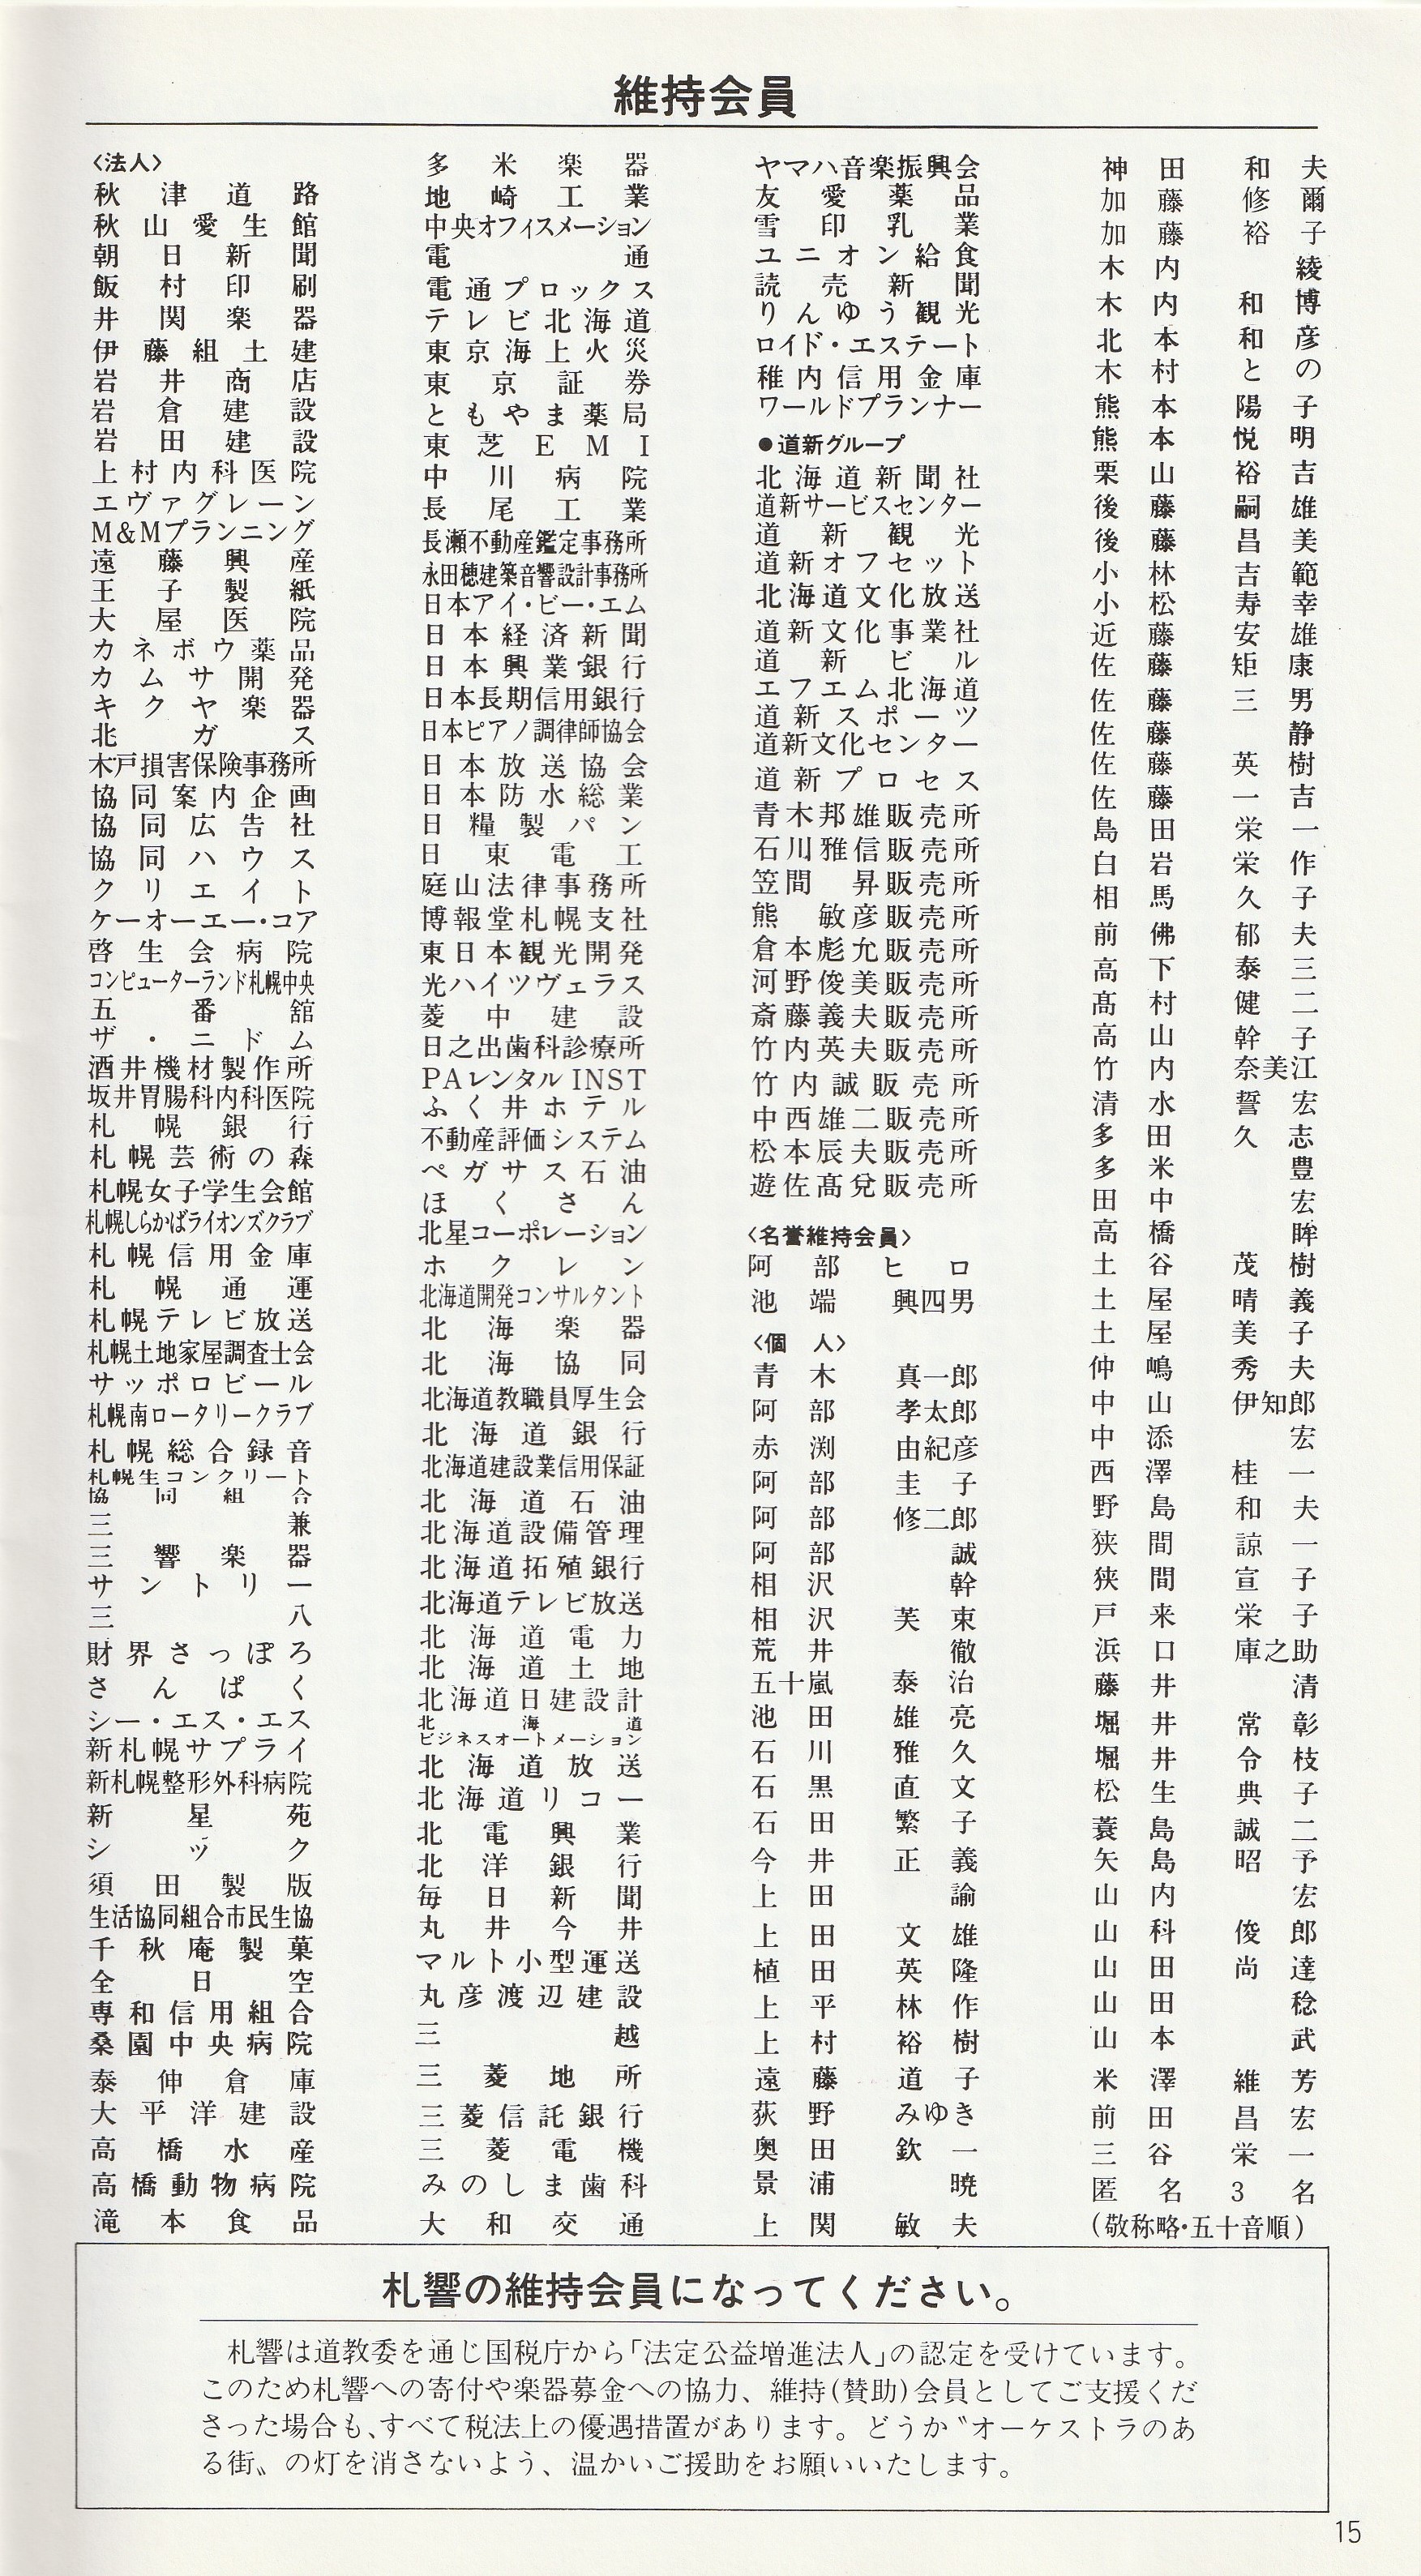 維持会員
〈法人〉
秋津道路
秋山愛生館
朝日新聞
飯村印刷
井関楽器
伊藤組土建
岩井商店
岩倉建設
岩田建設
上村内科医院
エヴァグレーン
M&Mプランニング
遠藤興産
王子製紙
大屋医院
カネボウ薬品
カムサ開発
キクヤ楽器
北ガス
木戸損害保険事務所
協同案内企画
協同広告社
協同ハウス
クリエイト
ケーオーエー・コア
啓生会病院
コンピューターランド札幌中央
五番舘
ザ・ニドム
酒井機材製作所
坂井胃腸科内科医院
札幌銀行
札幌芸術の森
札幌女子学生会館
札幌しらかばライオンズクラブ
札幌信用金庫
札幌通運
札幌テレビ放送
札幌土地家屋調査士会
サッポロビール
札幌南ロータリークラブ
札幌総合録音
札幌生コンクリート
協同組合
三兼
三響楽器
サントリー
三八
財界さっぽろ
さんぱく
シー・エス・エス
新札幌サプライ
新札幌整形外科病院
新星苑
シック
須田製版
生活協同組合市民生協
千秋庵製菓
全日空
専和信用組合
桑園中央病院
泰伸倉庫
大平洋建設
高橋水産
高橋動物病院
滝本食品
多米楽器
地崎工業
中央オフィスメーション
電通
電通プロックス
テレビ北海道
東京海上火災
東京証券
ともやま薬局
東芝EMI
中川病院
長尾工業
長瀬不動産鑑定事務所
永田穂建築音響設計事務所
日本アイ・ビー・エム
日本経済新聞
日本興業銀行
日本長期信用銀行
日本ピアノ調律師協会
日本放送協会
日本防水総業
日糧製パン
日東電工
庭山法律事務所
博報堂札幌支社
東日本観光開発
光ハイツヴェラス
菱中建設
日之出歯科診療所
PAレンタルINST
ふく井ホテル
不動産評価システム
ペガサス石油
ほくさん
北星コーポレーション
ホクレン
北海道開発コンサルタント
北海楽器
北海協同
北海道教職員厚生会
北海道銀行
北海道建設業信用保証
北海道石油
北海道設備管理
北海道拓殖銀行
北海道テレビ放送
北海道電力
北海道土地
北海道日建設計
北海道
ビジネスオートメーション
北海道放送
北海道リコー
北電興業
北洋銀行
毎日新聞
丸井今井
マルト小型運送
丸彦渡辺建設
三越
三菱地所
三菱信託銀行
三菱電機
みのしま歯科
大和交通
ヤマハ音楽振興会
友愛薬品
雪印乳業
ユニオン給食
読売新聞
りんゆう観光
ロイド・エステート
稚内信用金庫
ワールドプランナー
●道新グループ
北海道新聞社
道新サービスセンター
道新観光
道新オフセット
北海道文化放送
道新文化事業社
道新ビル
エフエム北海道
道新スポーツ
道新文化センター
道新プロセス
青木邦雄販売所
石川雅信販売所
笠間 昇販売所
熊 敏彦販売所
倉本彪允販売所
河野俊美販売所
斎藤義夫販売所
竹内英夫販売所
竹内誠販売所
中西雄二販売所
松本辰夫販売所
遊佐髙兌販売所
〈名誉維持会員〉
阿部ヒロ
池端 興四男
〈個 人〉
青木 真一郎
阿部 孝太郎
赤渕 由紀彦
阿部 圭子
阿部 修二郎
阿部 誠
相沢 幹
相沢 芙束
荒井 徹
五十嵐 泰治
池田 雄亮
石川 雅久
石黒 直文
石田 繁子
今井 正義
上田 諭
上田 文雄
植田 英隆
上平 林作
上村 裕樹
遠藤 道子
荻野 みゆき
奥田 欽一
景浦 暁
上関 敏夫
神田 和夫
加藤 修爾
加藤 裕子
木内 綾
木内 和博
北本 和彦
木村 との
熊本 陽子
熊本 悦明
栗山 裕吉
後藤 嗣雄
後藤 昌美
小林 吉範
小松 寿幸
近藤 安雄
佐藤 矩康
佐藤 三男
佐藤 静
佐藤 英樹
佐藤 一吉
島田 栄一
白岩 栄作
相馬 久子
前佛 郁夫
高下 泰三
髙村 健二
高山 幹子
竹内 奈美江
清水 誓宏
多田 久志
多米 豊
田中 宏
高橋 眸
土谷 茂樹
土屋 晴義
土屋 美子
仲嶋 秀夫
中山 伊知郎
中添 宏
西澤 桂一
野島 和夫
狭間 諒一
狭間 宣子
戸来 栄子
浜口 庫之助
藤井 清
堀井 常彰
堀井 令枝
松生 典子
蓑島 誠二
矢島 昭予
山内 宏
山科 俊郎
山田 尚達
山田 稔
山本 武
米澤 維芳
前田 昌宏
三谷 栄一
匿名3名
(敬称略・五十音順)
札響の維持会員になってください。
札響は道教委を通じ国税庁から「法定公益増進法人」の認定を受けています。
このため札響への寄付や楽器募金への協力、維持(賛助)会員としてご支援くだ
さった場合も、すべて税法上の優遇措置があります。どうか〝オーケストラのあ
る街〟の灯を消さないよう、温かいご援助をお願いいたします。
15